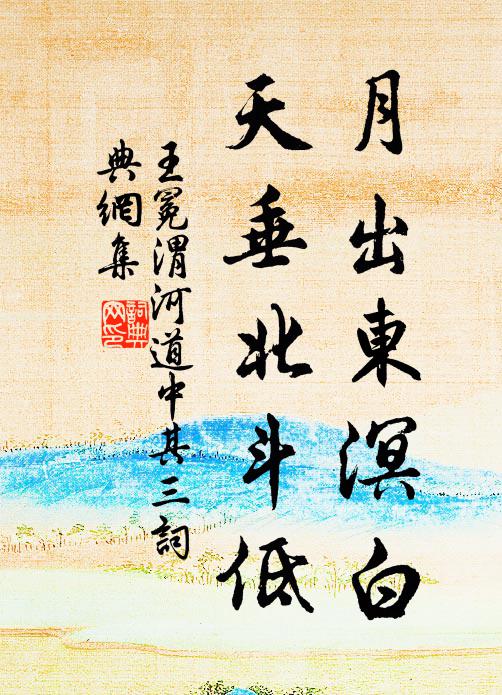 月出東溟白
天垂北斗低
王冕渭河道中其三詞
典網集
詞典
网印